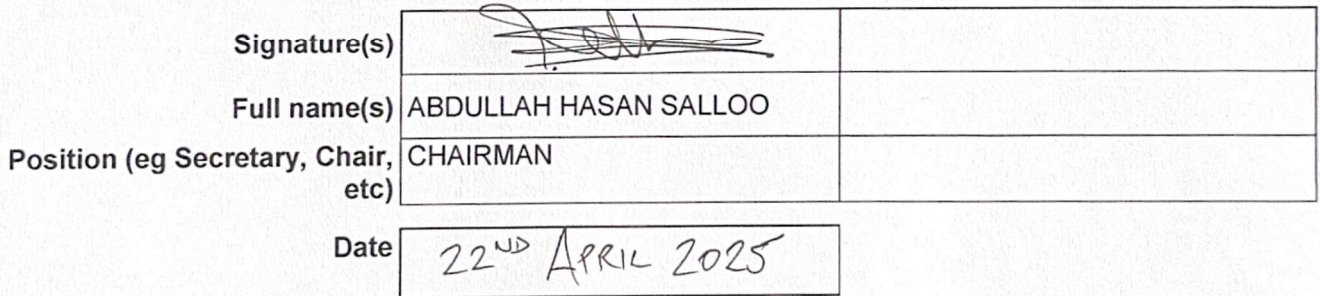 Signature(s)
Full name(s) ABDULLAH HASAN SALLOO
Position (eg Secretary, Chair, CHAIRMAN
etc)
Date 22ND APRIL 2025